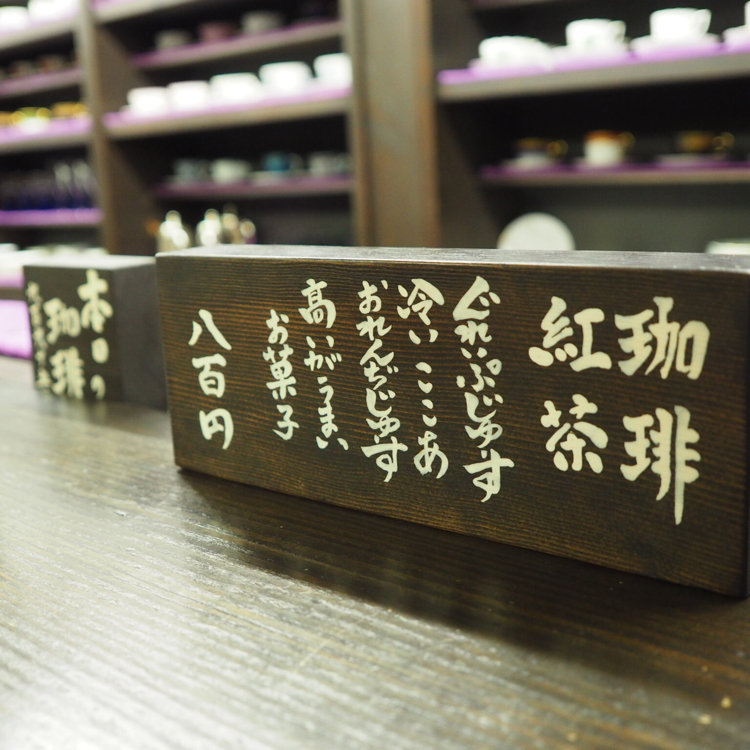 珈琲
紅茶
ぐれいぷじゅーす
冷い ここあ
おれんぢじゅーす
高いがうまい
お菓子
八百円
本日の
珈琲